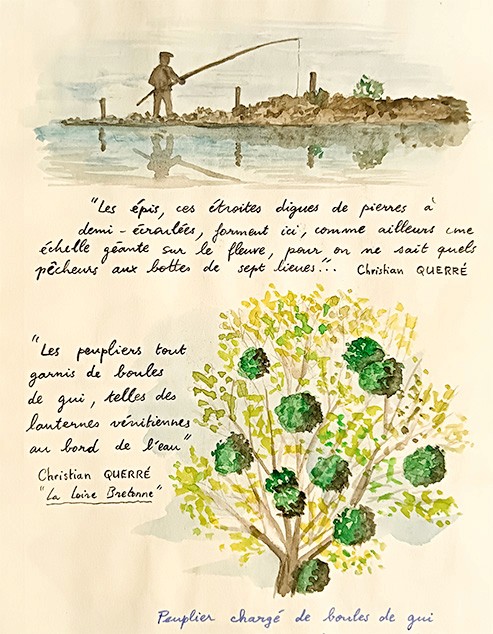 "Les épis, ces étroites digues de pierres à
demi-écroulées, forment ici, comme ailleurs une
échelle géante sur le fleuve, pour on ne sait quels
pêcheurs aux bottes de sept lieues"... Christian QUERRÉ
"Les peupliers tout
garnis de boules
de gui, telles des
lanternes vénitiennes
au bord de l'eau"
Christian QUERRÉ
"La Loire Bretonne"
Peuplier chargé de boules de gui